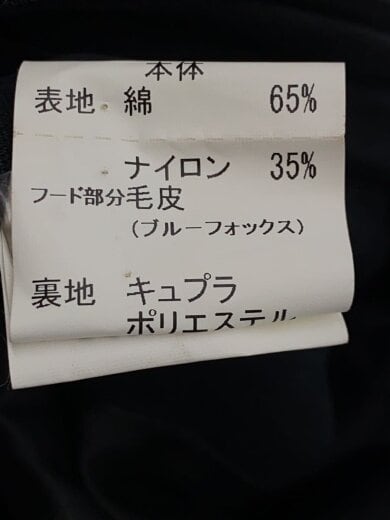 本体
表地 綿 65%
ナイロン 35%
フード部分毛皮
(ブルーフォックス)
裏地 キュプラ
ポリエステル